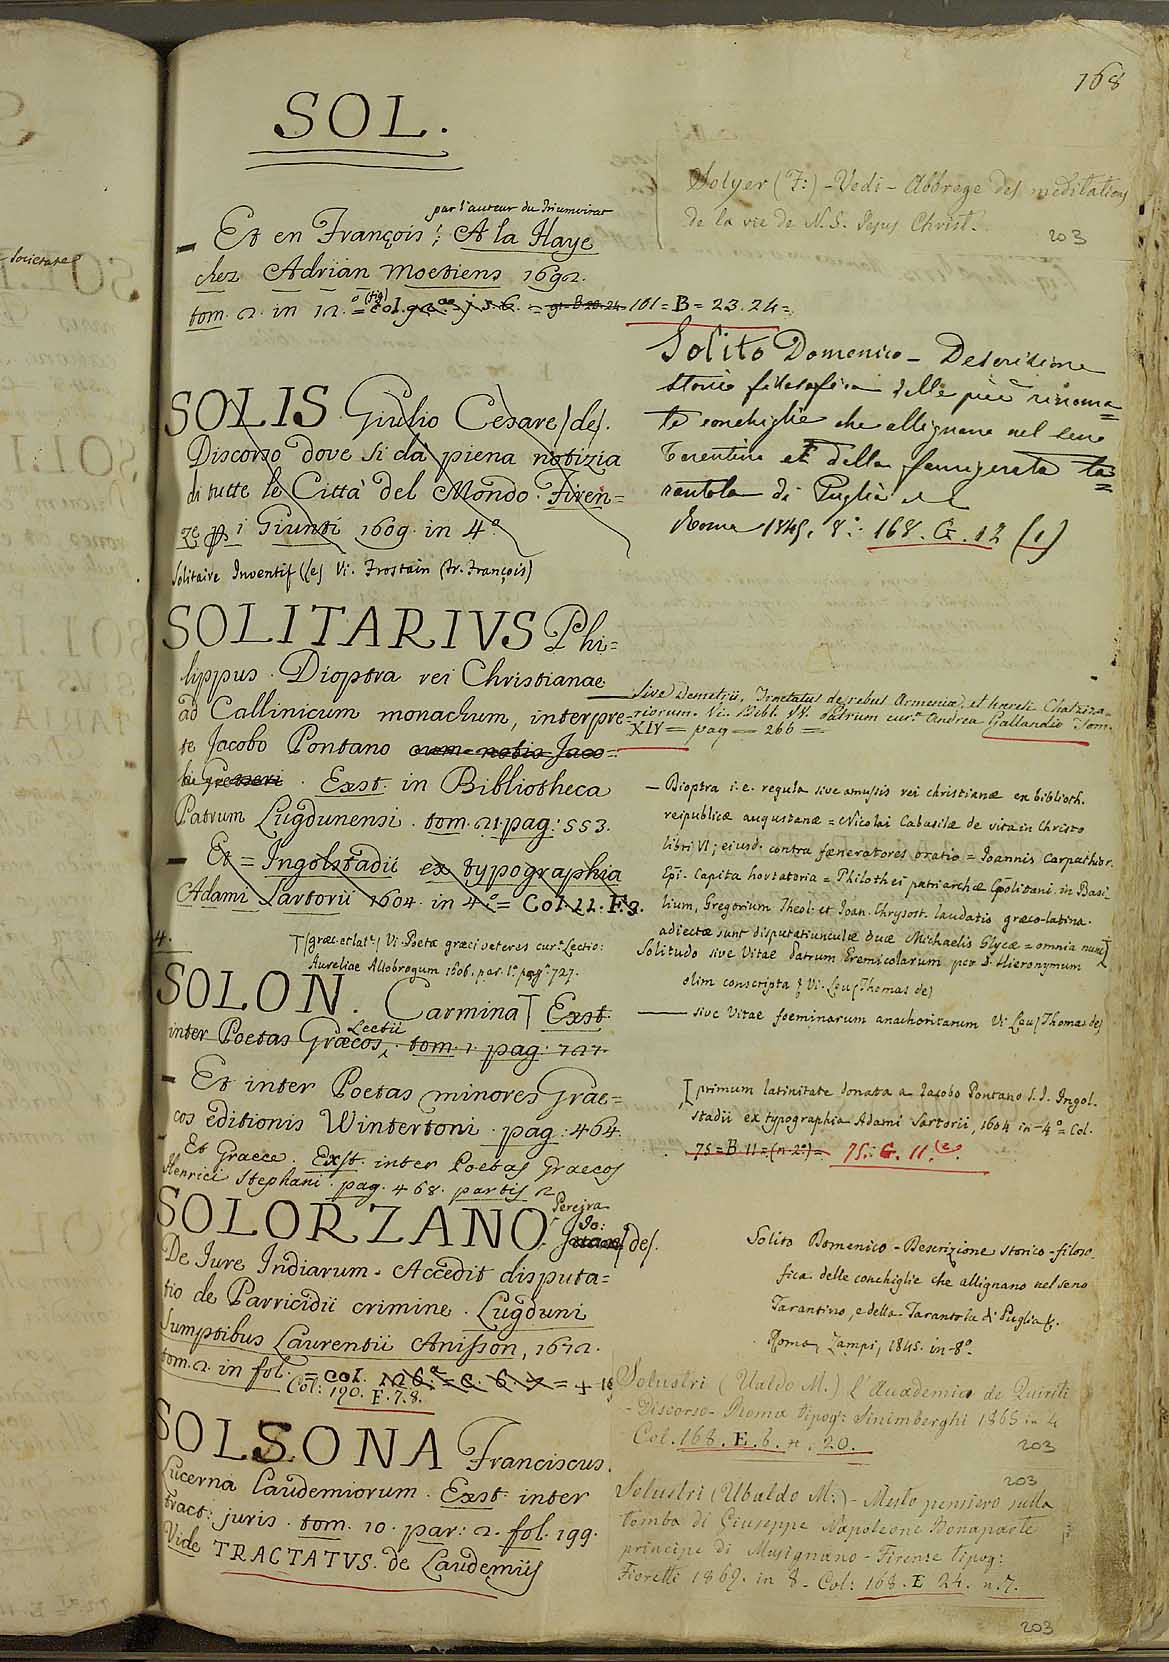 168
SOL.
par l'auteur du Triumvirat
– Et en François; A la Haye
chez Adrian Moetiens 1692.
tom. 2. in 12. (fig) 101 = B = 23. 24 =
SOLIS Giulio Cesare (de).
Discorso dove si dà piena notizia
di tutte le Città del Mondo. Firen=
ze i Giunti 1609. in 4°
Solitaire Inventif (le) Vi. Frostain (Fr. François)
SOLITARIVS Phi=
lippus. Dioptra rei Christianae
ad Callinicum monachum, interpre=
te Jacobo Pontano cum notis Jaco=
bi Gretseri. Exst. in Bibliotheca
Patrum Lugdunensi. tom. 21. pag: 553.
– Et = Ingolstadii ex typographia
Adami Sartorii 1604. in 4.° = Col 11. F. 9.
4.
(græc. et lat.) Vi. Poetæ græci veteres cur. Lectio:
Aureliae Allobrogum 1606. par. 1. pag. 727.
SOLON. Carmina Exst.
inter Poetas Græcos Lectii. tom. 1. pag: 727.
– Et inter Poetas minores Grae=
cos editionis Wintertoni. pag: 464.
– Et Graece. Exst. inter Poetas Graecos
Henrici Stephani. pag. 468. partis 2.
Pereira
SOLORZANO Jo: (de).
De Jure Indiarum. Accedit disputa=
tio de Parricidii crimine. Lugduni
Sumptibus Laurentii Anisson, 1672.
tom. 2. in fol. = col.
Col: 190. E. 7. 8.
SOLSONA Franciscus.
Lucerna Laudemiorum. Exst. inter
tract: juris. tom. 10. par: 2. fol. 199.
Vide TRACTATVS. de Laudemijs
Solyer (F:) – Vedi – Abbrege des meditations
de la vie de N. S. Jesus Christ.
203
Solito Domenico – Descrizione
storico filosofica delle più rinoma=
te conchiglie che allignano nel seno
Tarentino et della famigerata ta=
rantola di Puglia
Roma 1845. 8°. 168. G. 12 (1)
sive Demetrii, Tractatus de rebus Armeniæ, et hæresi Chatziza-
riorum. Vi. Bibl. VV. Patrum cur. Andrea Gallandio Tom.
XIV = pag = 266 =
– Dioptra i.e. regula sive amussis rei christianæ ex biblioth.
reipublicæ augustanæ = Nicolai Cabasilæ de vita in Christo
libri VI; ejusd. contra fæneratores oratio = Joannis Carpathior.
Epi. Capita hortatoria = Philothei patriarchæ Cpolitani in Basi-
lium, Gregorium Theol: et Joan. Chrysost. laudatio græco-latina.
adiectæ sunt disputatiunculæ duæ Michaelis Glycæ = omnia nunc
Solitudo sive Vitae Patrum Eremicolarum per D. Hieronymum
olim conscripta Vi. Leu (Thomas de)
—— sive Vitae foeminarum anachoritarum Vi. Leu (Thomas de)
primum latinitate donata a Jacobo Pontano S.J. Ingol-
stadii ex typographia Adami Sartorii, 1604 in-4° = Col.
75 = B 11 = (n. 2°) = 75. G. 11.
Solito Domenico – Descrizione storico-filoso
fica delle conchiglie che allignano nel seno
Tarantino, e della Tarantola di Puglia &.
Roma, Zampi, 1845. in-8°
Solustri (Ualdo M.) L'Accademico de Quiriti
– Discorso – Roma tipog: Sinimberghi 1865 in 4
Col. 168. E. 6. n. 20.
203
203
Solustri (Ubaldo M:) – Mesto pensiero sulla
tomba di Giuseppe Napoleone Bonaparte
principe di Musignano – Firenze tipog:
Fioretti 1869. in 8 – Col: 168. E 24. n. 7.
203